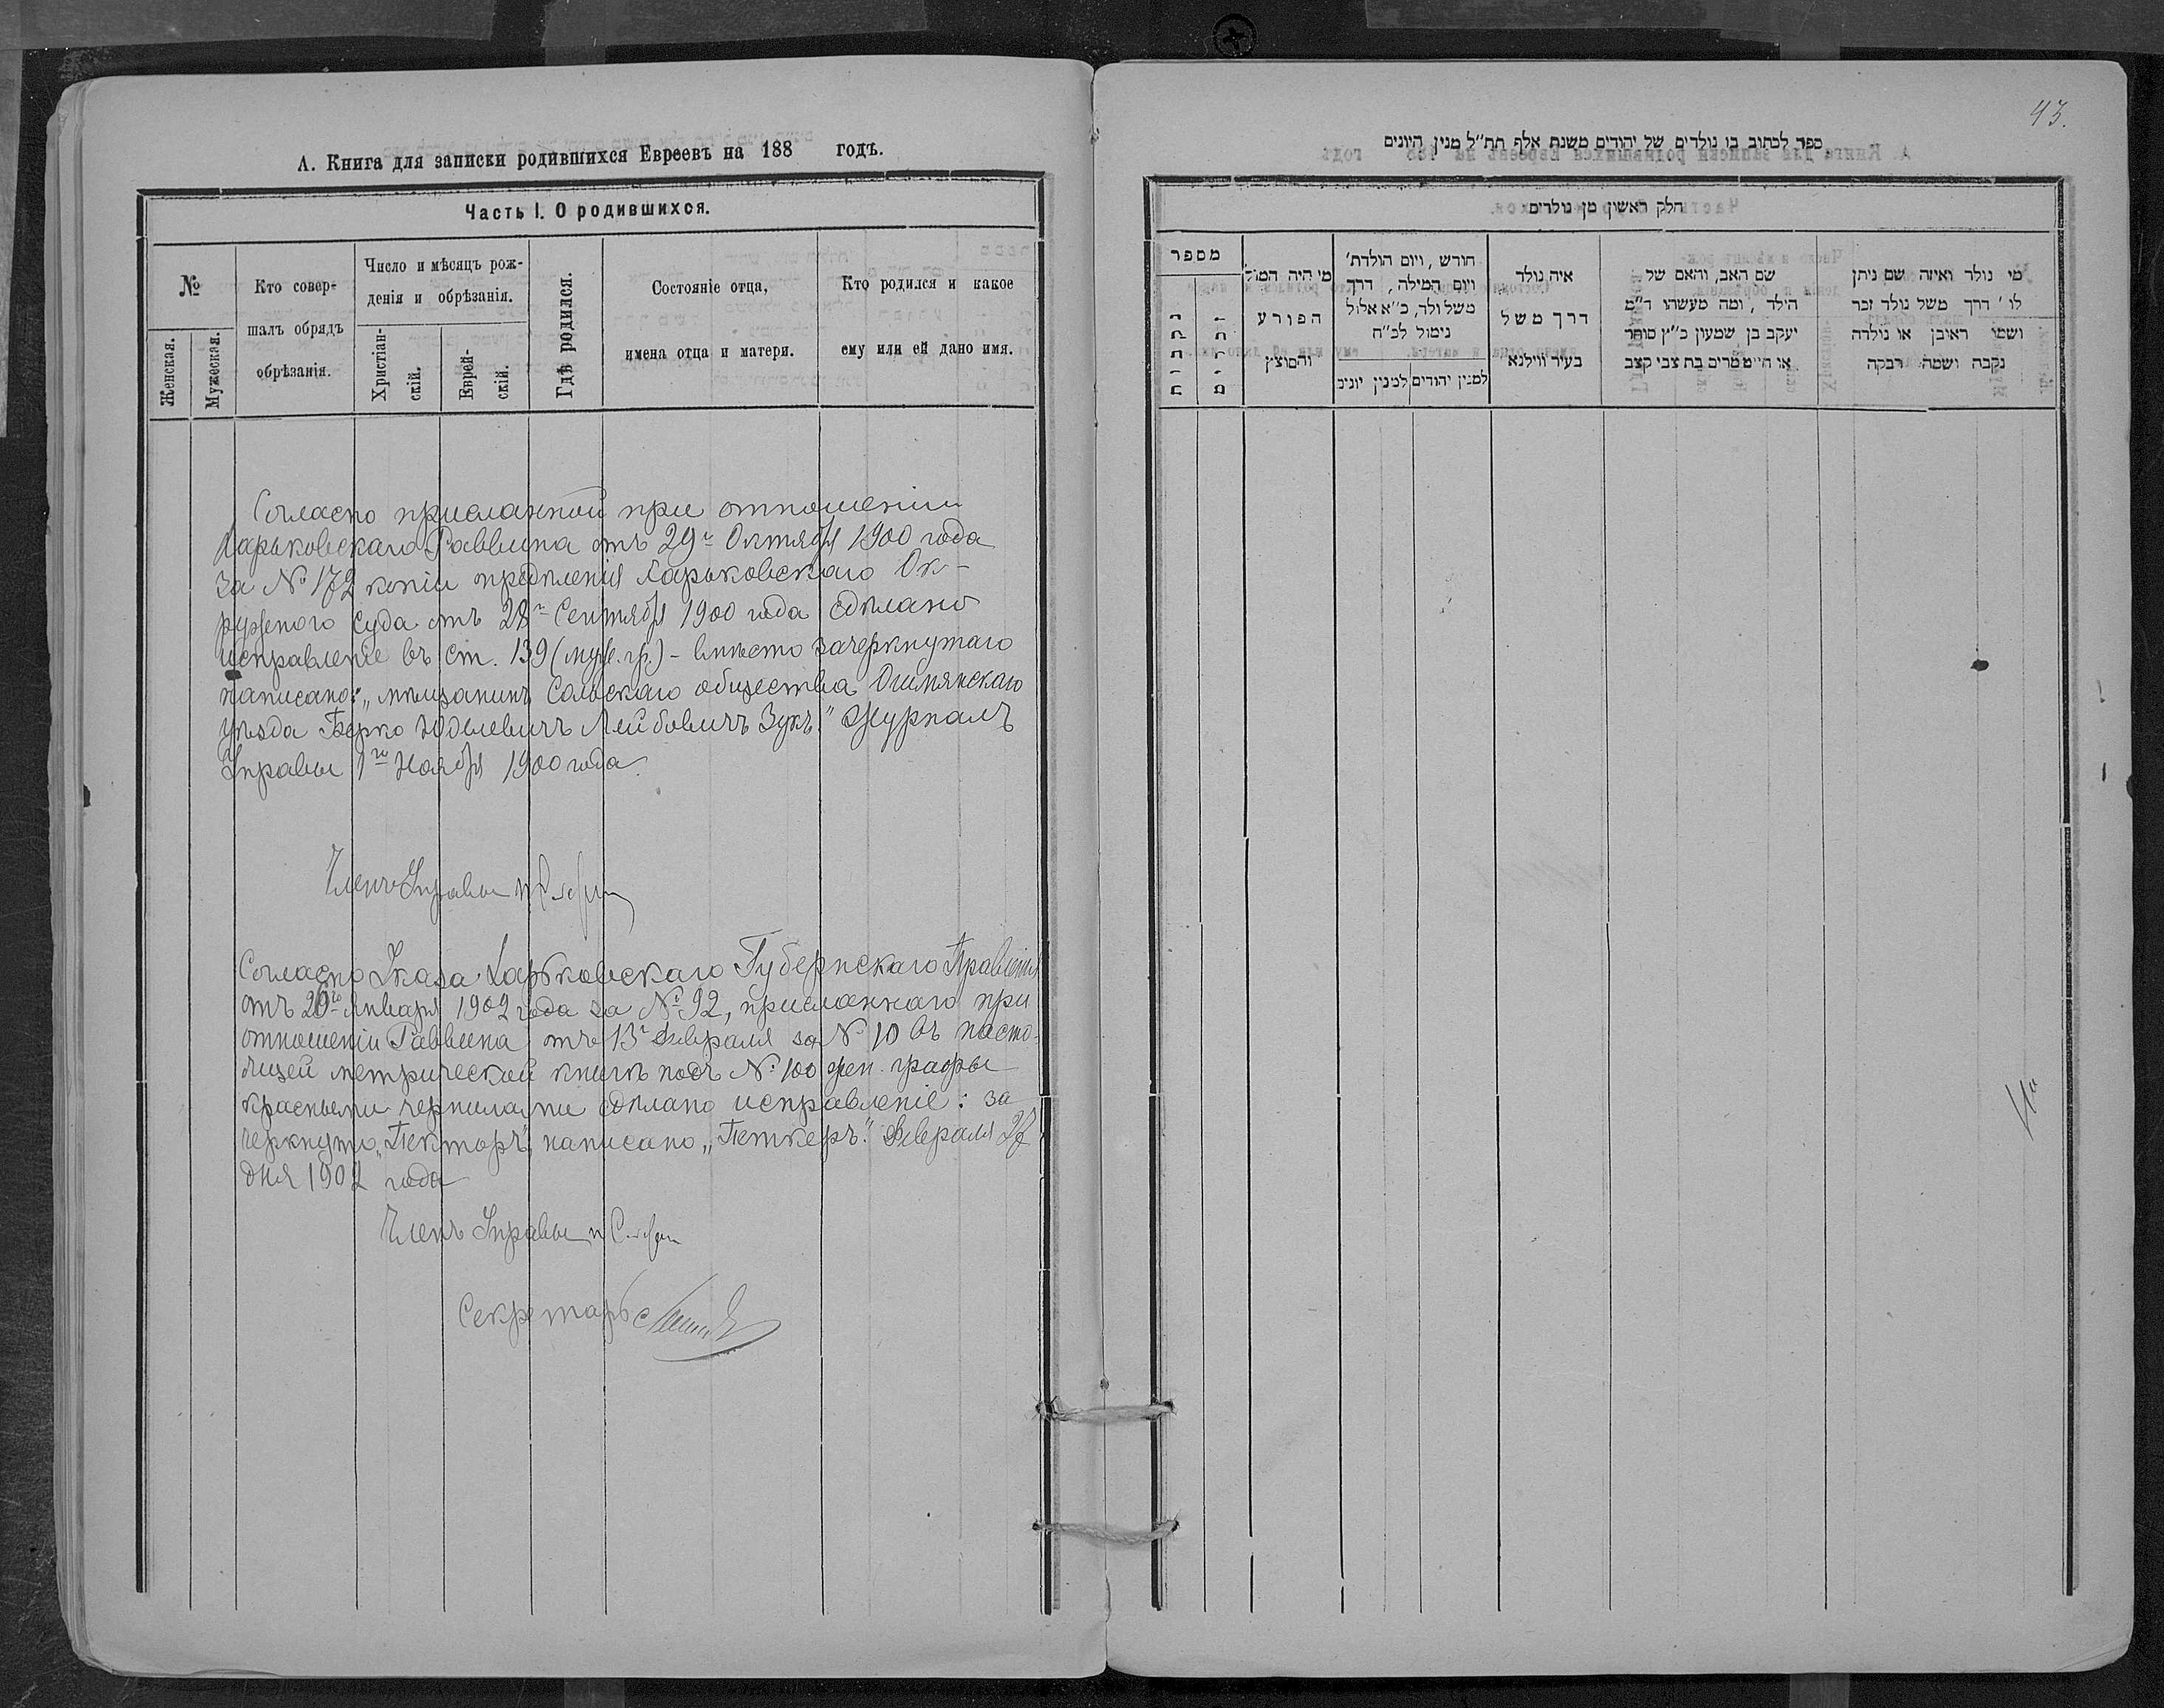 А. Книга для записки родившихся Евреевъ на 188 годъ.
Часть I. О родившихся.
№
Женская.
Мужеская.
Кто совер-
шалъ обрядъ
обрѣзанія.
Число и мѣсяцъ рож-
денія и обрѣзанія.
Христіан-
скій.
Еврей-
скій.
Гдѣ родился.
Состояніе отца,
имена отца и матери.
Кто родился и какое
ему или ей дано имя.
Согласно присланной при отношеніи
Харьковскаго Раввина отъ 29го Октября 1900 года
за № 172 копіи опредѣленія Харьковскаго Ок-
ружного Суда отъ 28го Сентября 1900 года сдѣлано
исправленіе въ ст. 139 (муж. гр.) - вмѣсто зачеркнутаго
написано: „мѣщанинъ Сольскаго общества Ошмянскаго
уѣзда Берко Юделевичъ Лейбовичъ Зукъ." Журналъ
Управы 1го Ноября 1900 года.
Членъ Управы
Согласно Указа Харьковскаго Губернскаго Правленія
отъ 20го Января 1902 года за № 92, присланнаго при
отношеніи Раввина отъ 13го Февраля за № 10 въ насто-
ящей метрической книгѣ подъ № 100 жен. графы
красными чернилами сдѣлано исправленіе: за
черкнуто „Пекторъ", написано „Петкеръ". Февраля 27
дня 1902 года
Членъ Управы
Секретарь
43.
ספר לכתוב בו נולדים של יהודים משנת אלף תת״ל מנין היונים
חלק ראשון מן נולדים
מספר
נקבות
זכרים
מי היה המוהל
הפורע
והמוצץ
חודש, ויום הולדת׳
ויום המילה, דרך
משל ולד, כ״א אלול
נימול לכ״ח
למנין יהודים
למנין יונים
איה נולד
דרך משל
בעיר ווילנא
שם האב, והאם של
הילד, ומה מעשהו ד״מ
יעקב בן שמעון כ״ץ סוחר
או חייט מרים בת צבי קצב
מי נולד ואיזה שם ניתן
לו׳ דרך משל נולד זכר
ושמו ראובן או נולדה
נקבה ושמה רבקה